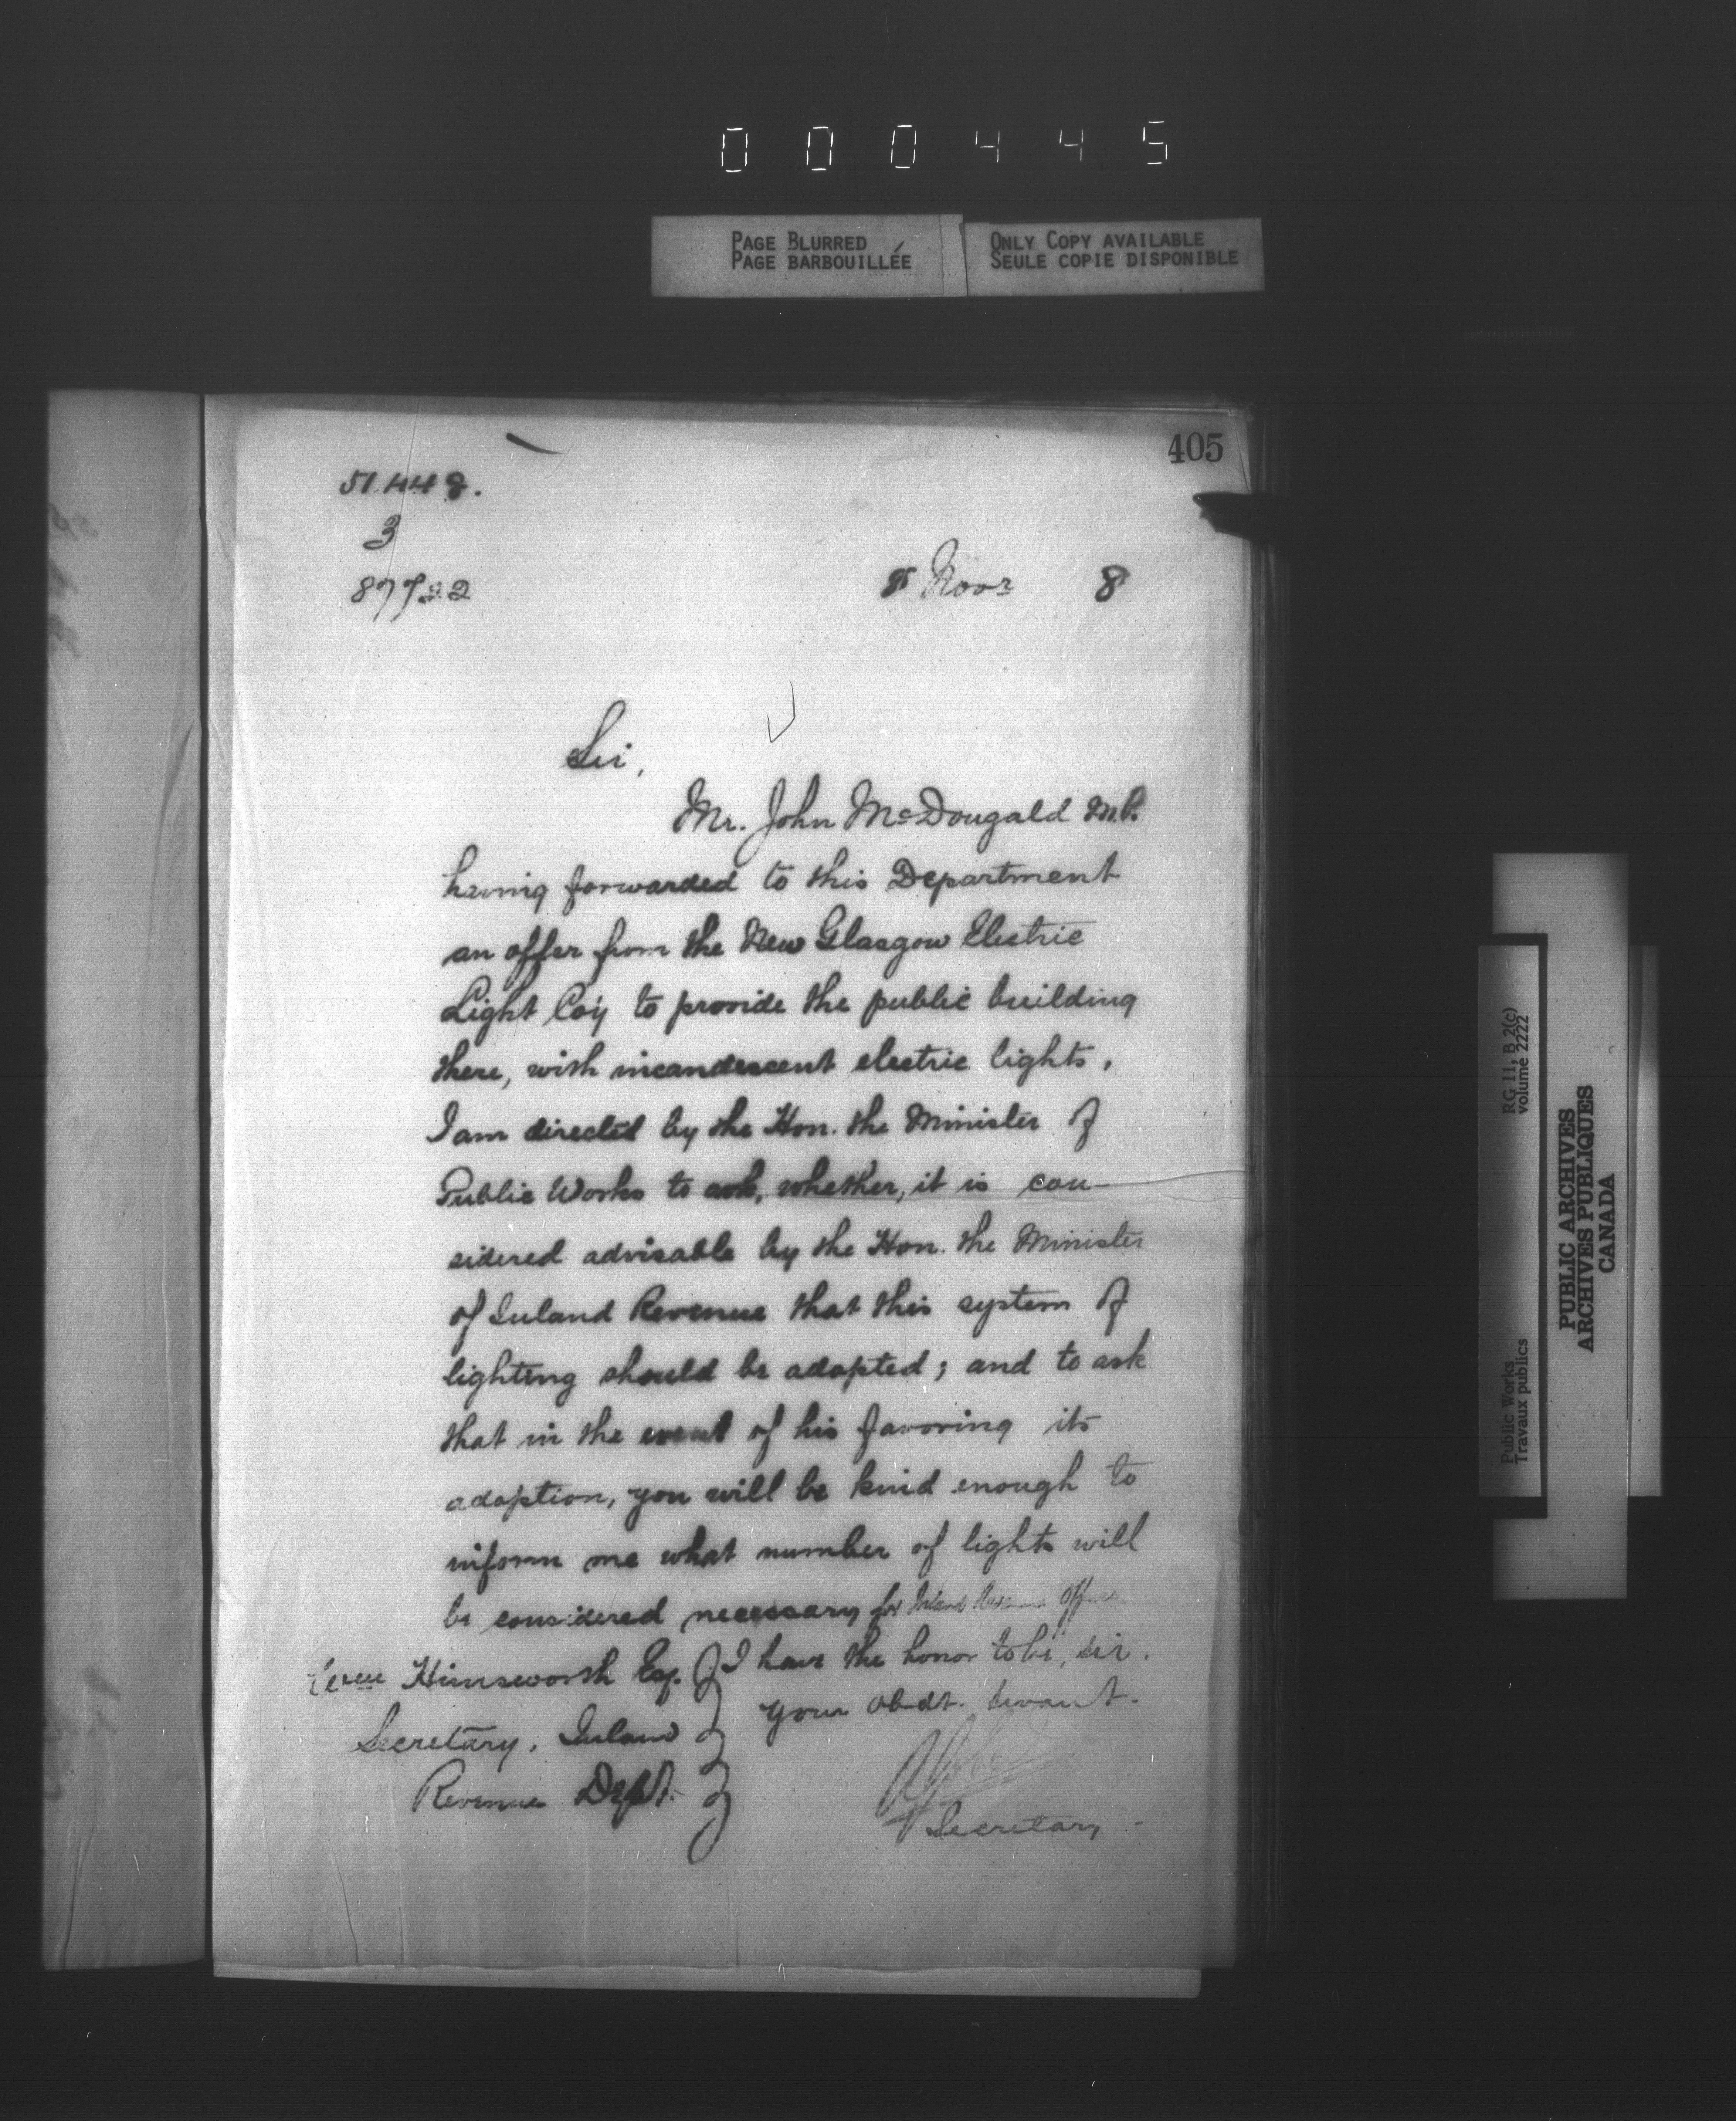 000445
PAGE BLURRED
PAGE BARBOUILLÉE
ONLY COPY AVAILABLE
SEULE COPIE DISPONIBLE
405
51.448.
3
87722
8 Novr 8
Sir,
Mr. John McDougald M.P.
having forwarded to this Department
an offer from the New Glasgow Electric
Light Coy to provide the public building
there, with incandescent electric lights,
I am directed by the Hon. the Minister of
Public Works to ask, whether, it is con-
sidered advisable by the Hon. the Minister
of Inland Revenue that this system of
lighting should be adopted; and to ask
that in the event of his favoring its
adoption, you will be kind enough to
inform me what number of lights will
be considered necessary for Inland Revenue Office
I have the honor to be, sir.
Your obdt. servant.
Secretary
Himsworth Esq.
Secretary, Inland
Revenue Dept.
RG 11, B 2(c)
volume 2222
Public Works
Travaux publics
PUBLIC ARCHIVES
ARCHIVES PUBLIQUES
CANADA